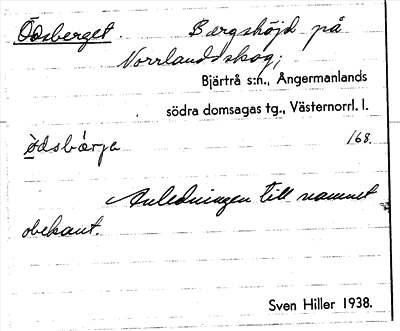 Ödsberget. Bergshöjd på
Norrlandsskog;
Bjärtrå s:n., Ångermanlands
södra domsagas tg., Västernorrl. l.
ødsbärja 168.
Anledningen till namnet
obekant.
Sven Hiller 1938.